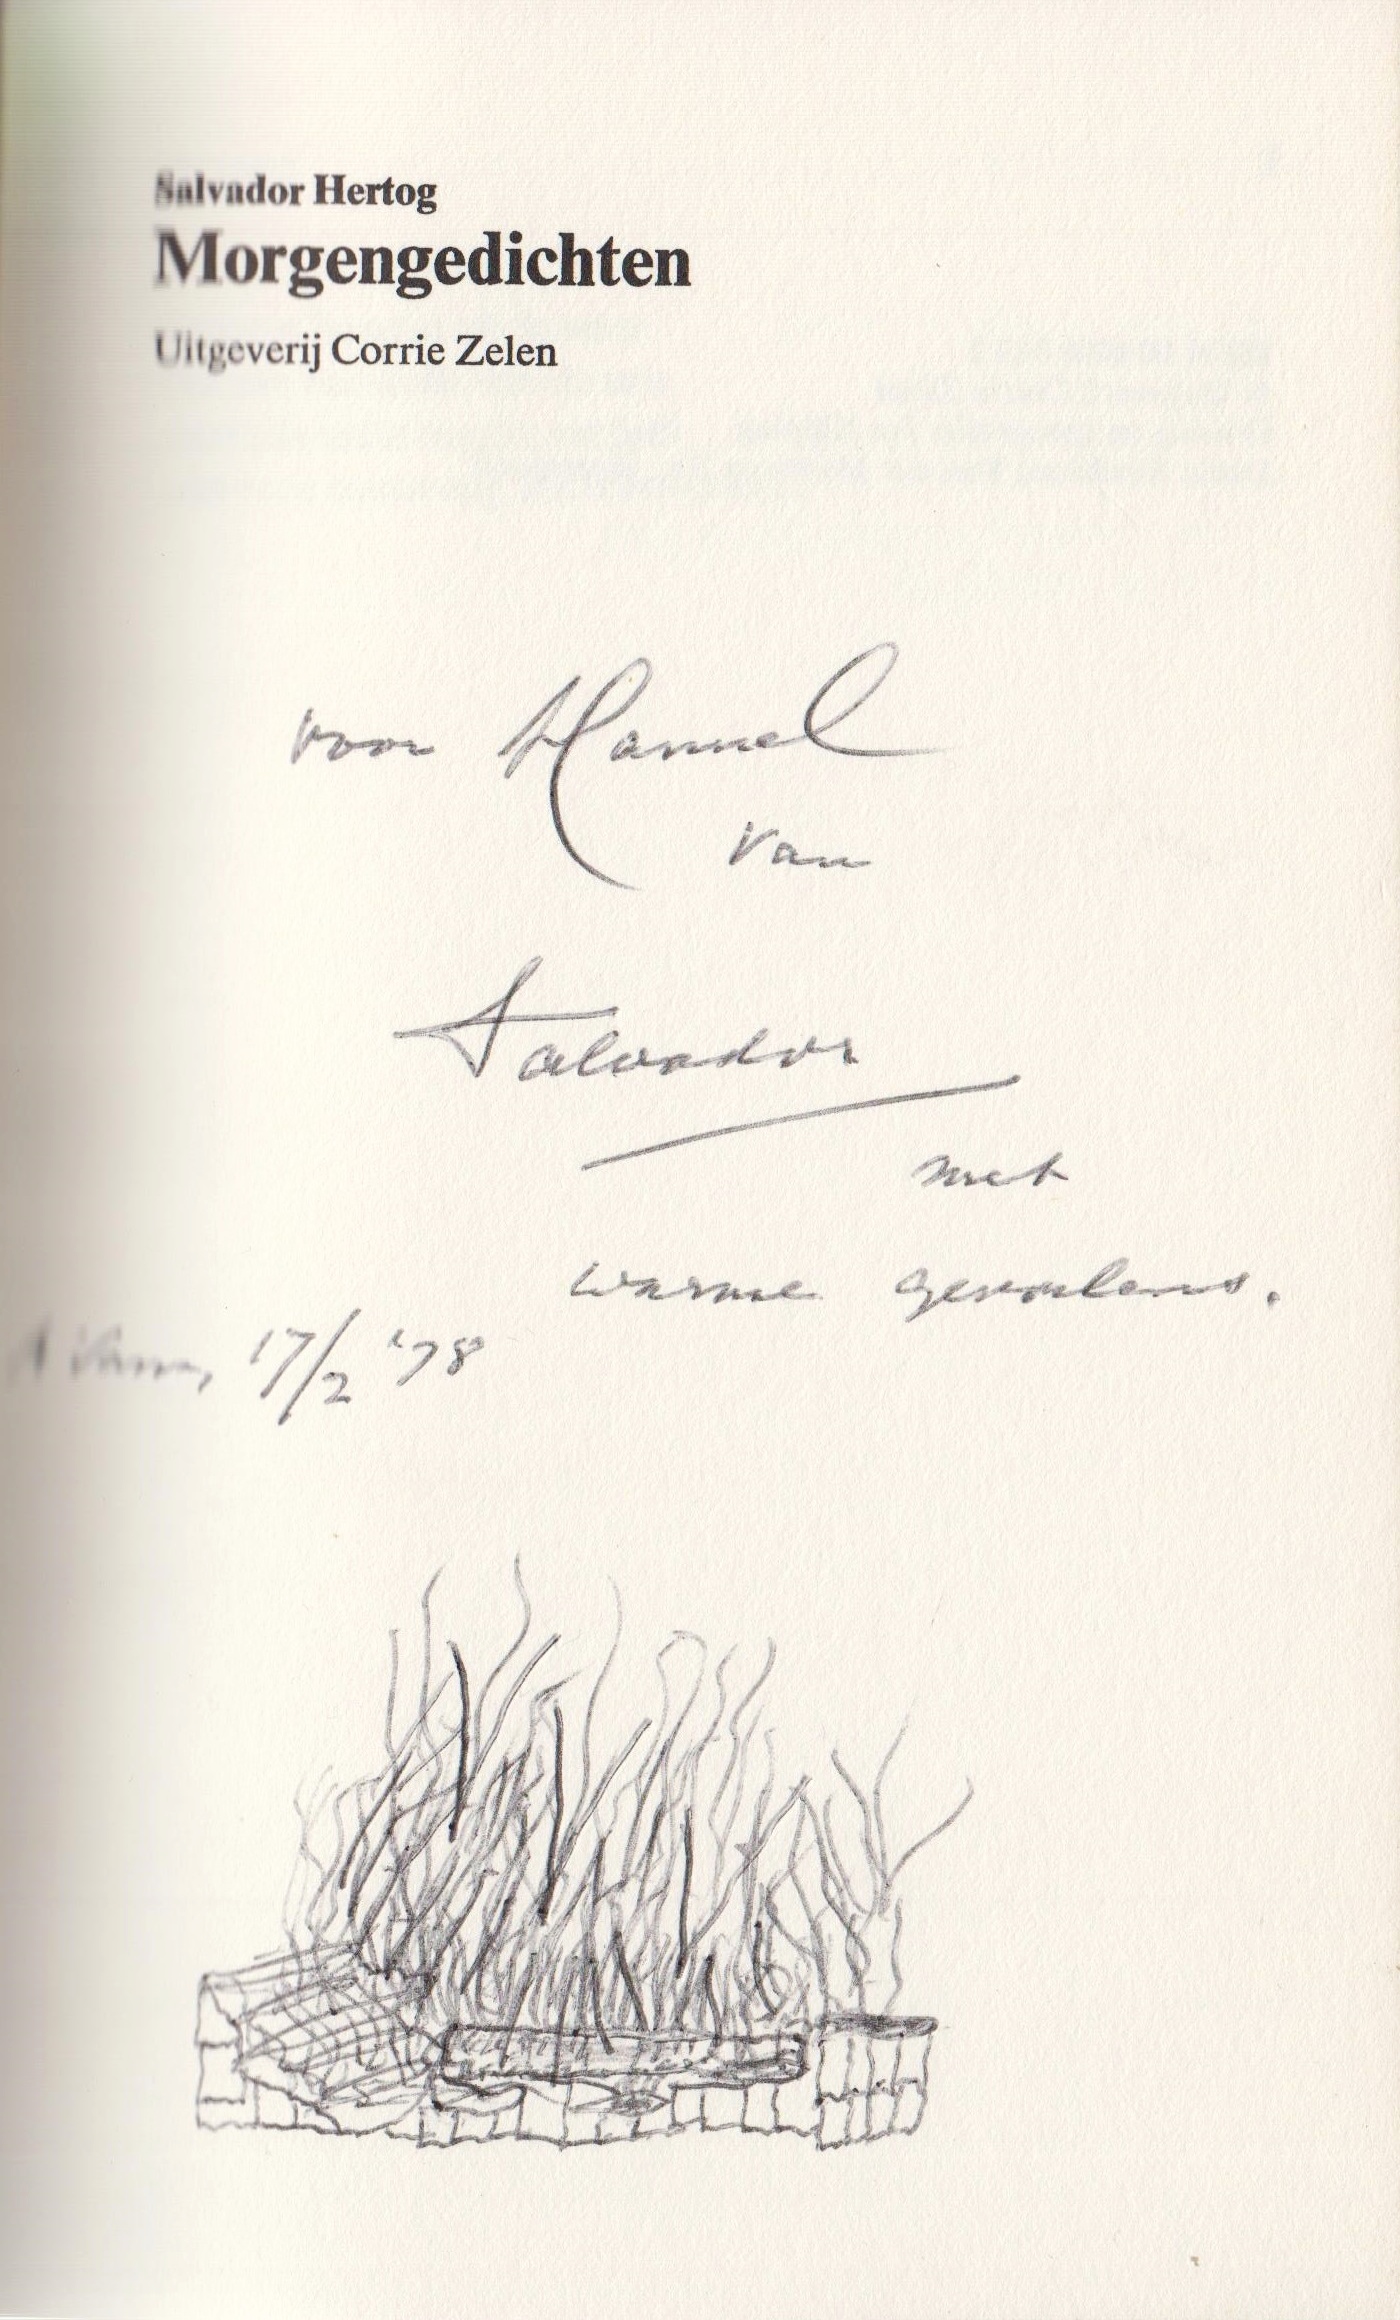 Salvador Hertog
Morgengedichten
Uitgeverij Corrie Zelen
voor Hannel
van
Salvador
met
warme gevoelens.
A'dam, 17/2 '78